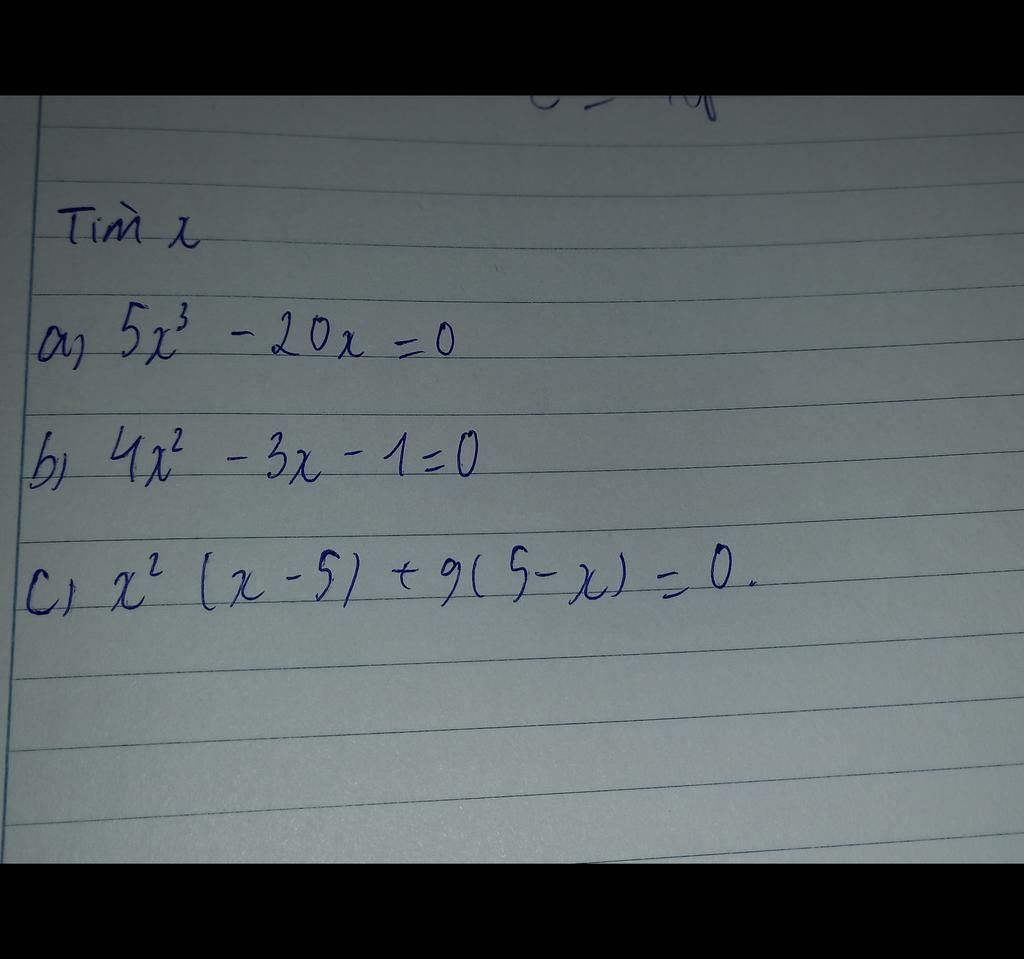 Tìm x
a) 5x³ - 20x = 0
b) 4x² - 3x - 1 = 0
c) x² (x - 5) + 9(5 - x) = 0.